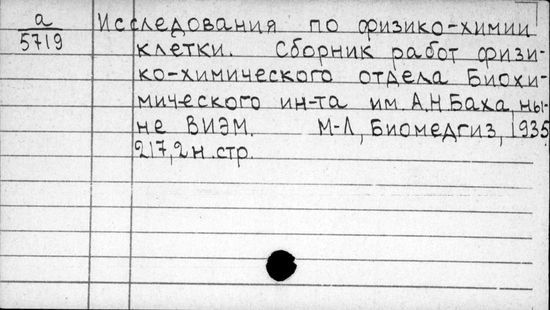 а
5719
Исследования по физико-химии
клетки. Сборник работ физи-
ко-химического отдела Биохи-
мического ин-та им. А.Н.Баха, ны-
не ВИЭМ. М-Л, Биомедгиз, 1935
217, 2 н. стр.